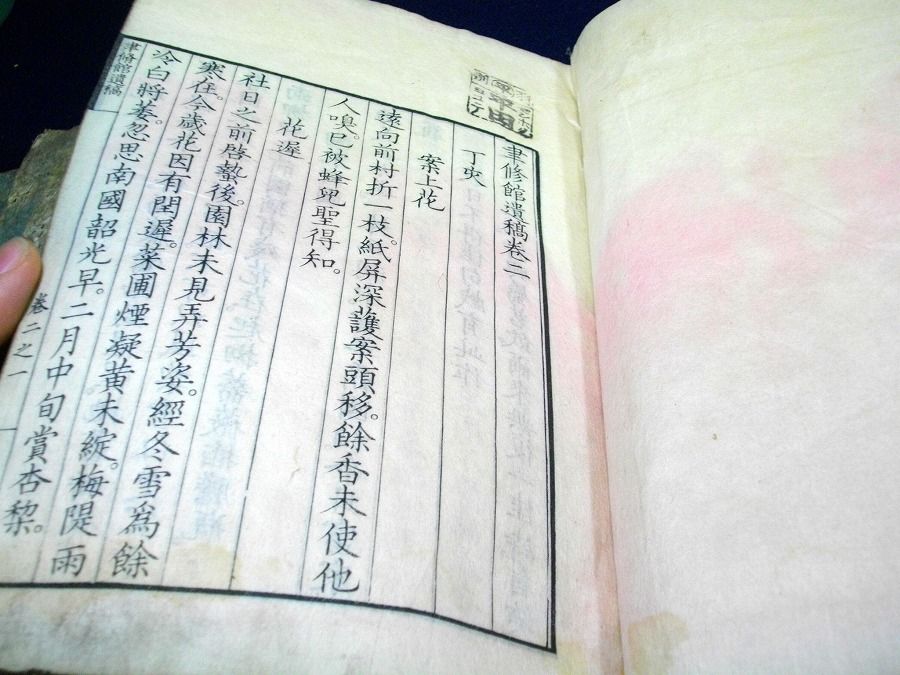 聿修館遺稿卷二
丁臾
案上花
遠向前村折一枝。紙屏深護案頭移。餘香未使他
人嗅。已被蜂兒聖得知。
花遲
社日之前啓蟄後。園林未見弄芳姿。經冬雪爲餘
寒在。今歲花因有閏遲。菜圃煙凝黃未綻。梅隄雨
冷白將萎。忽思南國韶光早。二月中旬賞杏棃。
聿修館遺稿
卷二之一